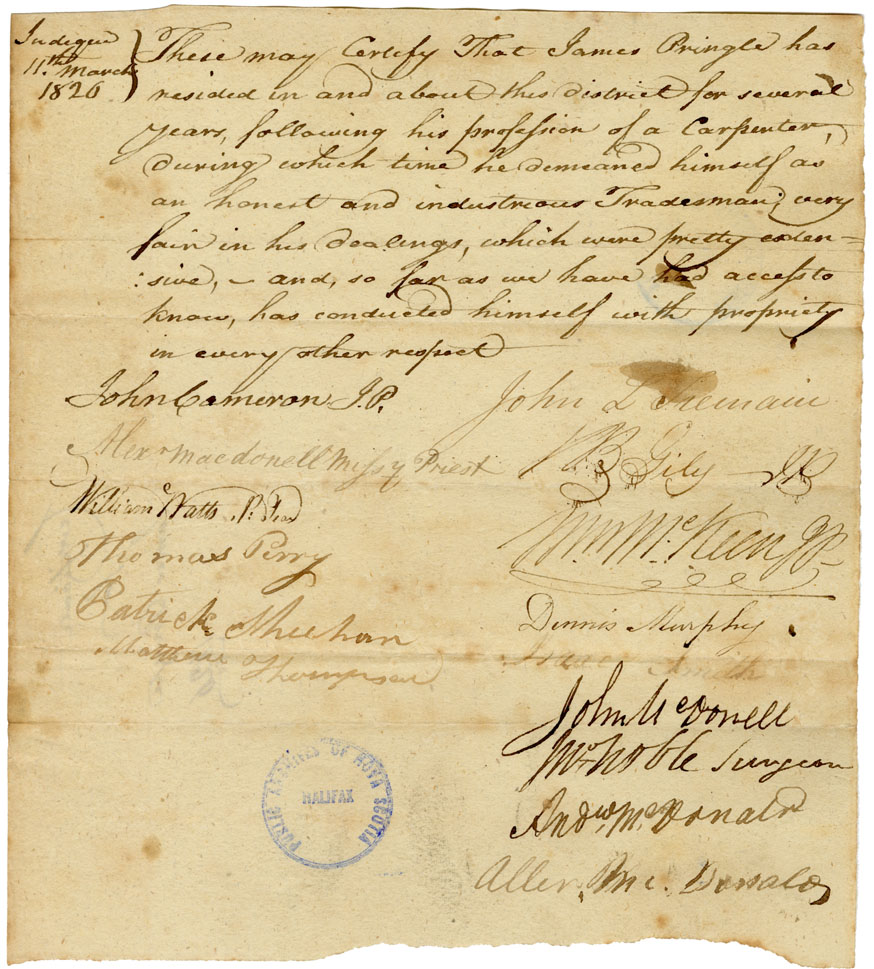 Judique
11th March
1826
These may Certify That James Pringle has
resided in and about this district for several
years, following his profession of a Carpenter,
during which time he demeaned himself as
an honest and industrious Tradesman; very
fair in his dealings, which were pretty exten=
:sive, - and, so far as we have had access to
know, has conducted himself with propriety
in every other respect
John Cameron J.P.
Alexr Macdonell Missy Priest
William Watts
Thomas Perry
Patrick Sheehan
Matthew Thompson
John L Tremain
Gily JP
Wm McKeen JP
Dennis Murphy
Isaac Smith
John McDonell
Noble Surgeon
Andw. McDonald
Allen Mc. Donald
PUBLIC ARCHIVES OF NOVA SCOTIA
HALIFAX